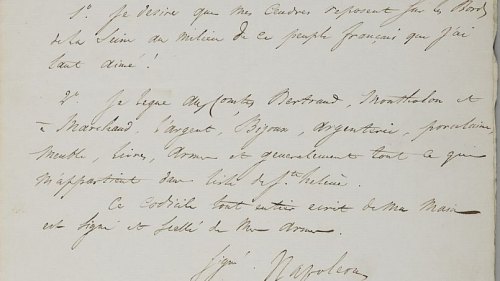 1º. Je desire que mes Cendres reposent sur les Bords
de la Seine au milieu de ce peuple français que j'ai
tant aimé !
2º. Je legue aux Comtes Bertrand, Montholon et
Marchand l'argent, Bijoux, argenterie, porcelaine
meuble, livres, armes et generalement tout ce qui
m'appartient dans l'isle de Ste hélène.
Ce Codicile tout entier ecrit de ma Main
est signé et scellé de mes armes.
signé. Napoleon